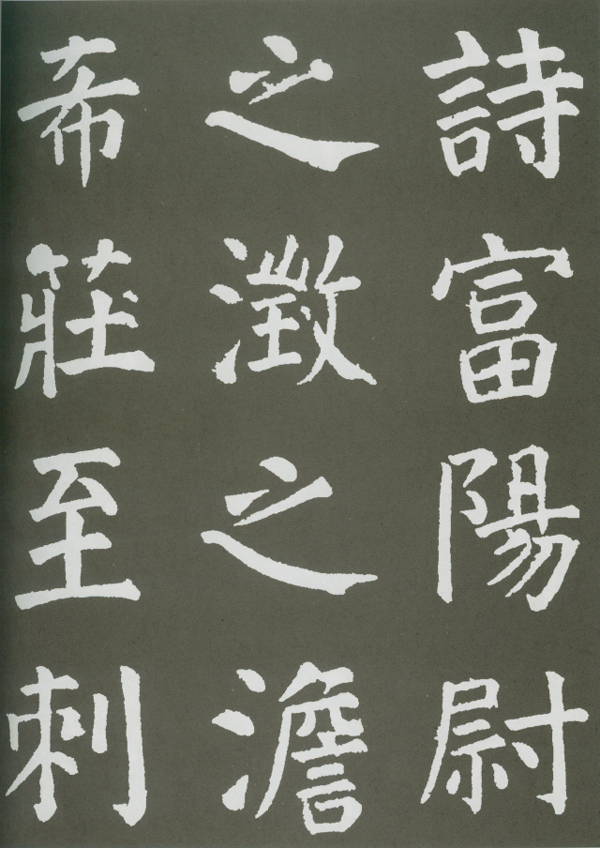 詩富陽尉
之澂之澹
希莊至刺